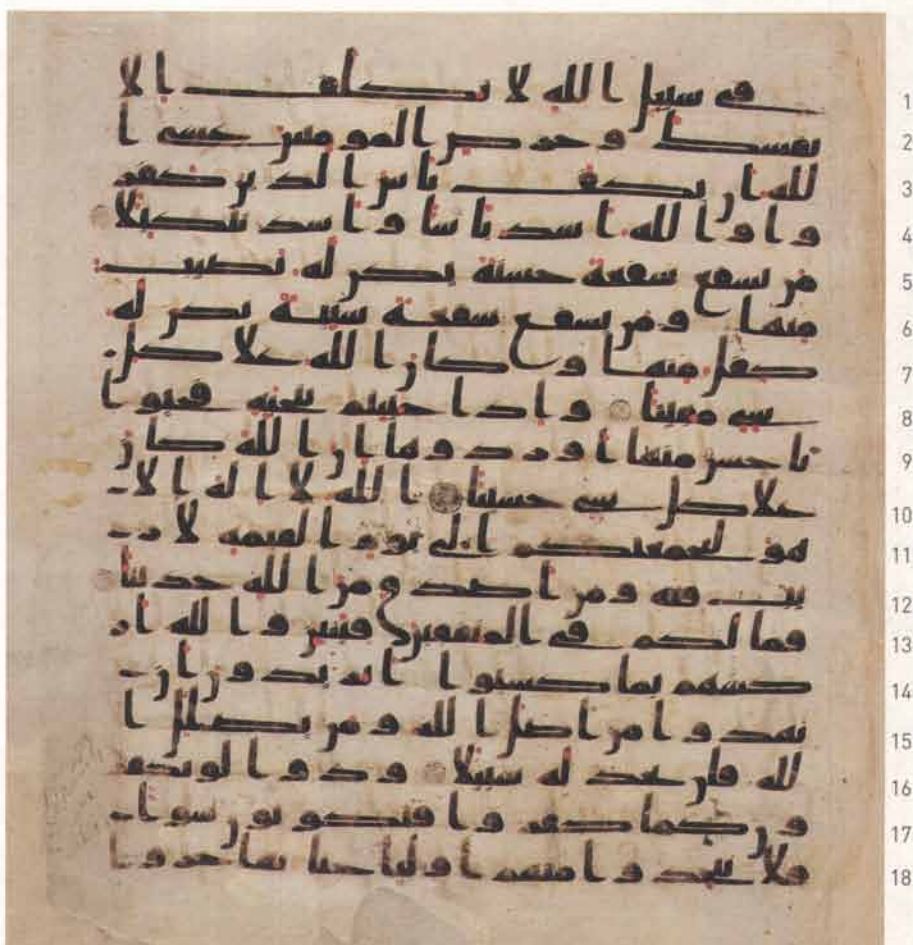 في سبيل الله لا تكلف ا لا 1
نفسك وحرض المومنين عسى ا 2
لله ان يكف باس الذين كفر 3
وا والله اشد باسا واشد تنكيلا 4
من يشفع شفعة حسنة يكن له نصيب 5
منها ومن يشفع شفعة سيئة يكن له 6
كفل منها وكان الله علا كل 7
شي مقيتا واذا حييتم بتحية فحيوا 8
باحسن منها او ردوها ان الله كان 9
علا كل شي حسيبا الله لا اله الا 10
هو ليجمعنكم الى يوم القيمة لا ر 11
يب فيه ومن اصدق من الله حديثا 12
فما لكم في المنفقين فئتين والله ار 13
كسهم بما كسبوا اتريدون ان 14
تهدوا من اضل الله ومن يضلل ا 15
لله فلن تجد له سبيلا ودوا لو تكفر 16
ون كما كفروا فتكونون سوا 17
فلا تتخذوا منهم اوليا حتا يهاجروا 18